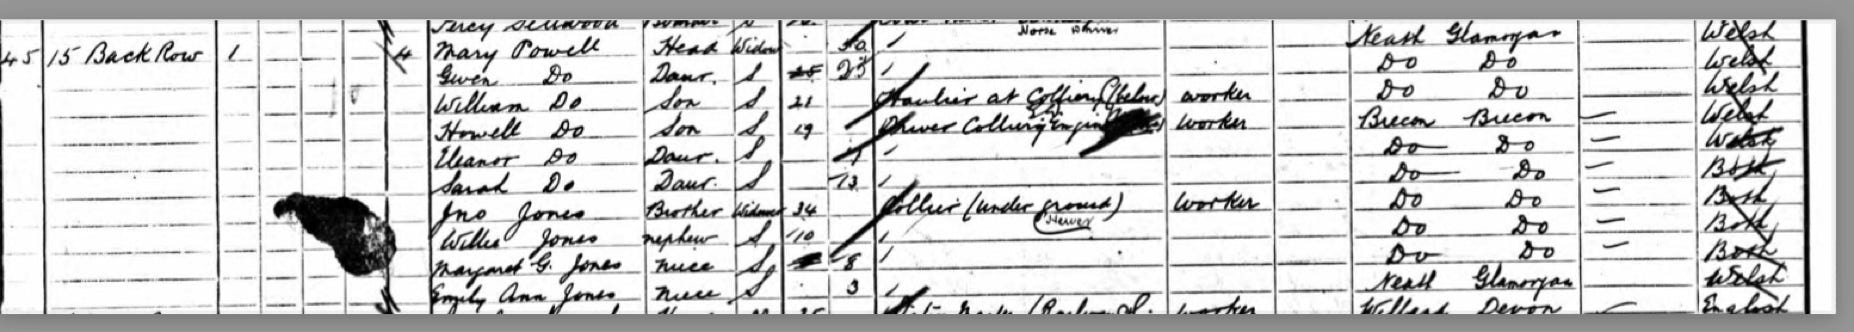 Percy Sellwood S
Horse Driver
45 15 Back Row 1 4 Mary Powell Head Widow 50 Neath Glamorgan Welsh
Gwen Do Daur. S 25 25 Do Do Welsh
William Do Son S 21 Haulier at Colliery (below) worker Do Do Welsh
Howell Do Son S 19 Driver Colliery Engine worker Brecon Brecon — Welsh
Eleanor Do Daur. S Do Do — Welsh
Sarah Do Daur. S 13 Do Do — Both
Jno Jones Brother Widower 34 Collier (under ground) worker Do Do — Both
Hewer
Willie Jones nephew S 10 Do Do — Both
Margaret G. Jones niece S 8 Do Do — Both
Emily Ann Jones niece S 3 Neath Glamorgan Welsh
35 worker Devon English